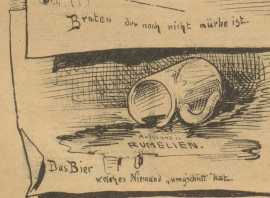 Braten der noch nicht mürbe ist.
RUMELIEN.
Das Bier
welches Niemand „umg'schütt" hat.